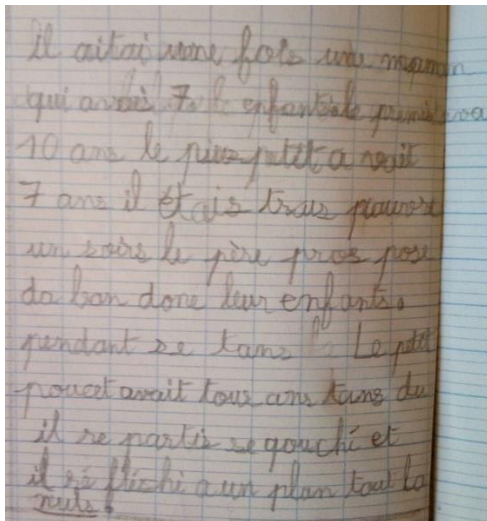 il aitai une fois une maman
qui avais 7 enfants le premier a
10 ans le plus petit a vait
7 ans il étais trais pauvre
un soirs le père pros pose
da ban done leur enfants.
pendant se tans Le petit
poucet avait tous ans tans du
il re partis se qouché et
il ré fléchi a un plan tout la
nuis.